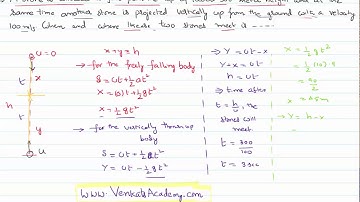 same time another stone is projected vertically up from the ground with a velocity
100m/s. When and where these two stones meet is ----
u=0
t
x
h
t
y
u
x+y=h
-for the freely falling body
S=ut+½at²
x=(0)t+½gt²
x=½gt²
-for the vertically thrown up
body
S=ut+½at²
Y=ut-½gt²
→ Y=ut-x
Y+x=ut
h=ut
→ time after
t=h/u, the
stones will
meet
t=300/100
t=3 sec
x=½gt²
x=45m
→ Y=h-x
www.VenkatsAcademy.com